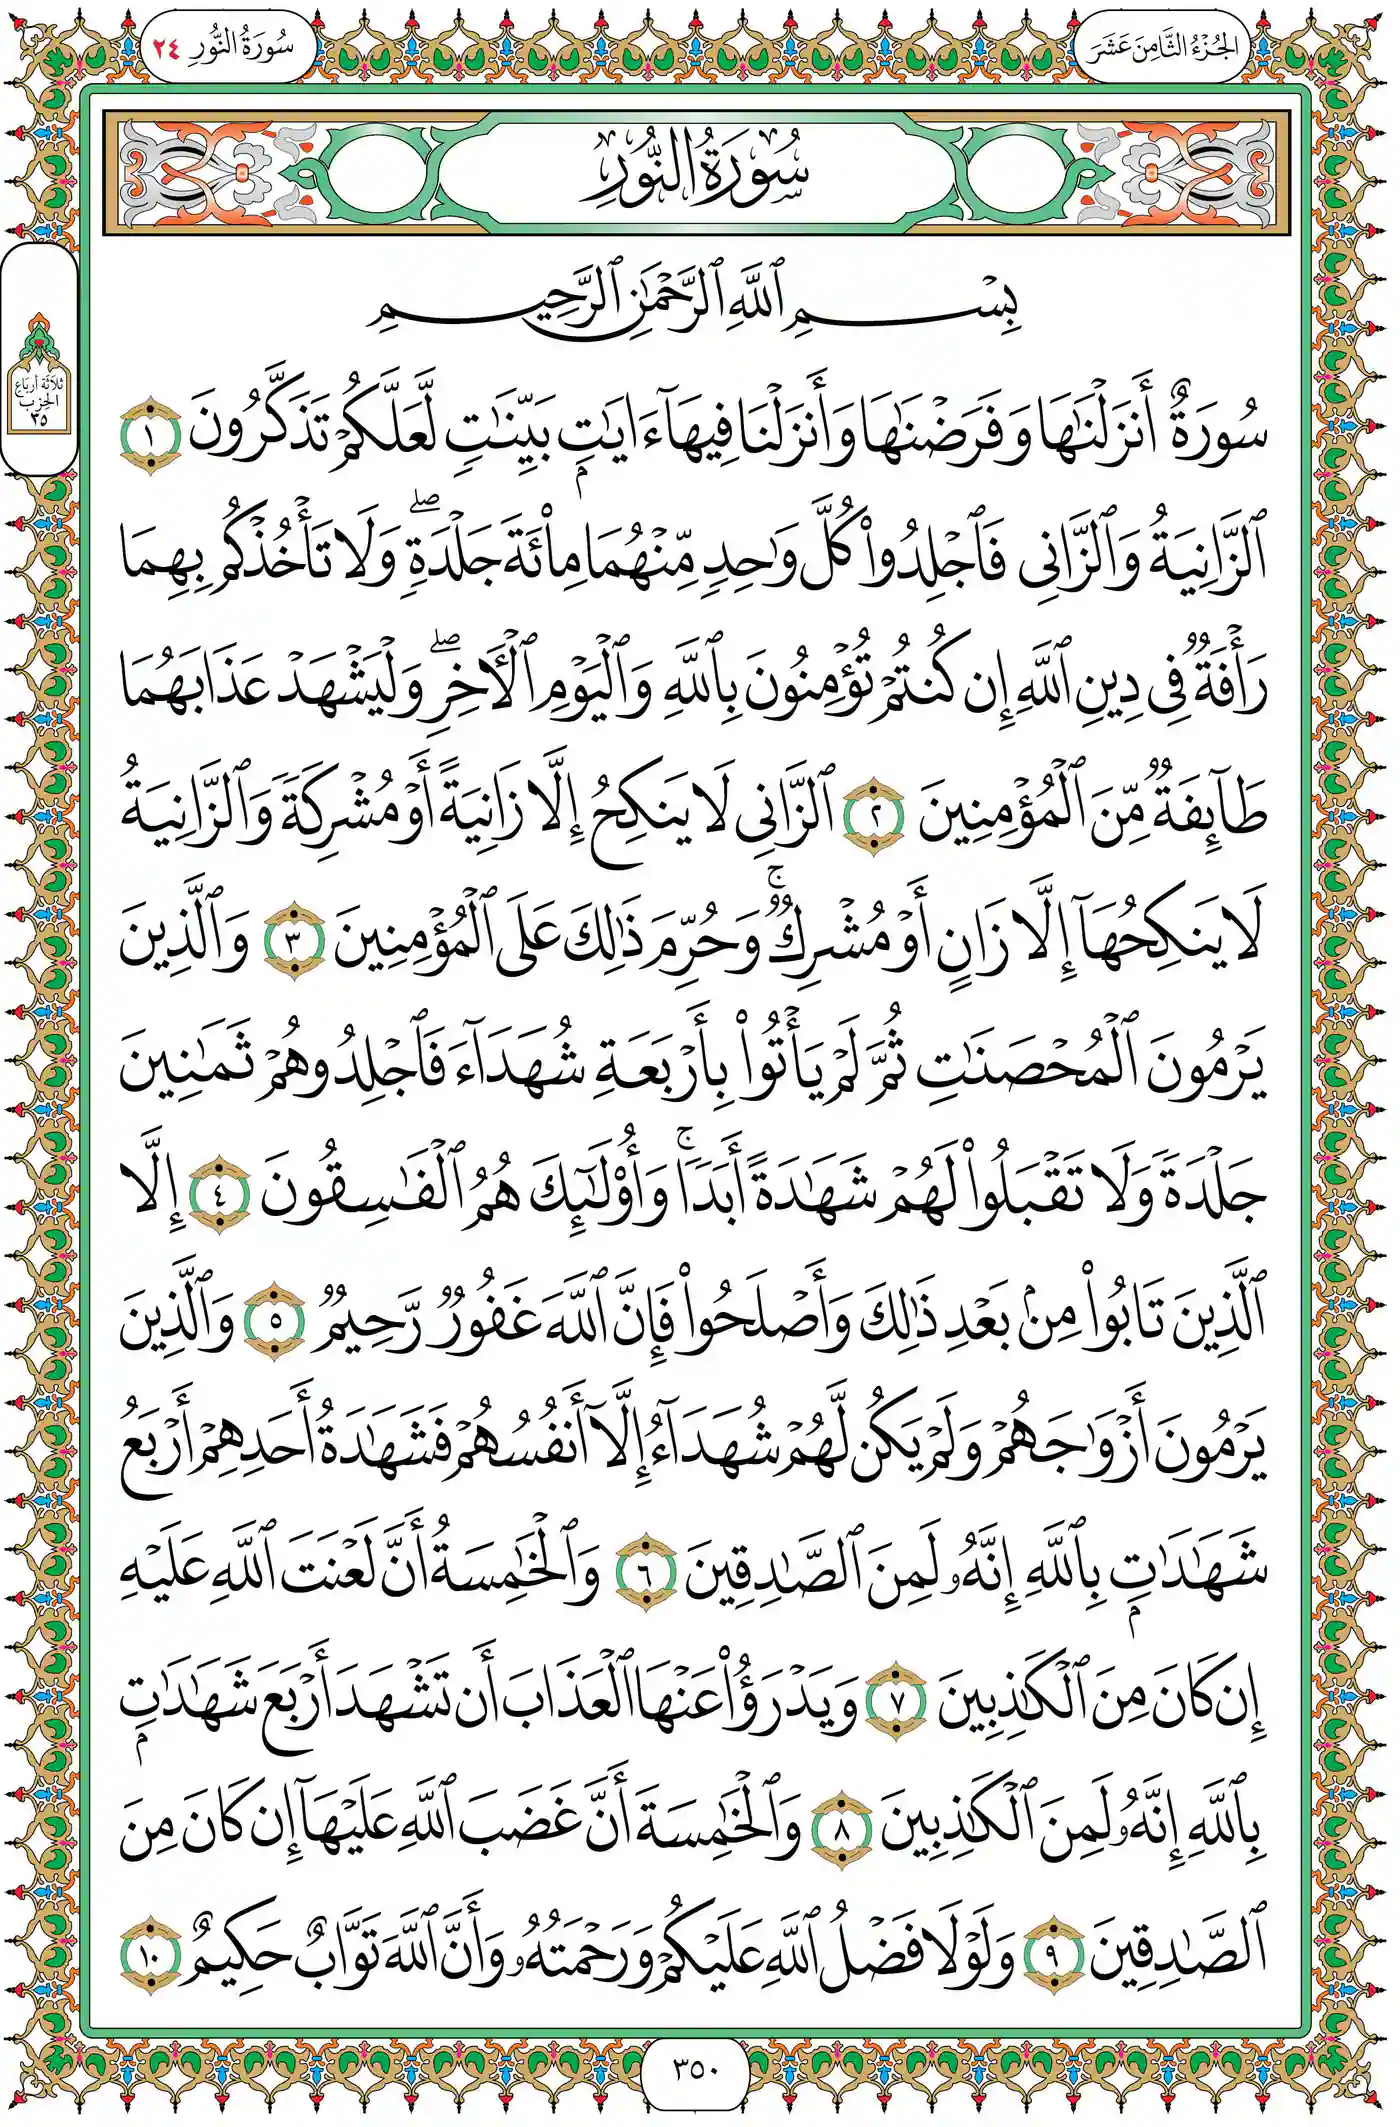 الجُزْءُ الثَّامِنَ عَشَرَ
سُورَةُ النُّورِ ٢٤
سُورَةُ النُّورِ
ثلاثة أرباع
الحِزب
٣٥
بِسْمِ ٱللَّهِ ٱلرَّحْمَٰنِ ٱلرَّحِيمِ
سُورَةٌ أَنزَلْنَٰهَا وَفَرَضْنَٰهَا وَأَنزَلْنَا فِيهَآ ءَايَٰتٍۭ بَيِّنَٰتٍ لَّعَلَّكُمْ تَذَكَّرُونَ ١
ٱلزَّانِيَةُ وَٱلزَّانِى فَٱجْلِدُوا۟ كُلَّ وَٰحِدٍ مِّنْهُمَا مِا۟ئَةَ جَلْدَةٍۖ وَلَا تَأْخُذْكُم بِهِمَا
رَأْفَةٌ فِى دِينِ ٱللَّهِ إِن كُنتُمْ تُؤْمِنُونَ بِٱللَّهِ وَٱلْيَوْمِ ٱلْأَخِرِۖ وَلْيَشْهَدْ عَذَابَهُمَا
طَآئِفَةٌ مِّنَ ٱلْمُؤْمِنِينَ ٢ ٱلزَّانِى لَا يَنكِحُ إِلَّا زَانِيَةً أَوْ مُشْرِكَةً وَٱلزَّانِيَةُ
لَا يَنكِحُهَآ إِلَّا زَانٍ أَوْ مُشْرِكٌۚ وَحُرِّمَ ذَٰلِكَ عَلَى ٱلْمُؤْمِنِينَ ٣ وَٱلَّذِينَ
يَرْمُونَ ٱلْمُحْصَنَٰتِ ثُمَّ لَمْ يَأْتُوا۟ بِأَرْبَعَةِ شُهَدَآءَ فَٱجْلِدُوهُمْ ثَمَٰنِينَ
جَلْدَةً وَلَا تَقْبَلُوا۟ لَهُمْ شَهَٰدَةً أَبَدًاۚ وَأُو۟لَٰٓئِكَ هُمُ ٱلْفَٰسِقُونَ ٤ إِلَّا
ٱلَّذِينَ تَابُوا۟ مِنۢ بَعْدِ ذَٰلِكَ وَأَصْلَحُوا۟ فَإِنَّ ٱللَّهَ غَفُورٌ رَّحِيمٌ ٥ وَٱلَّذِينَ
يَرْمُونَ أَزْوَٰجَهُمْ وَلَمْ يَكُن لَّهُمْ شُهَدَآءُ إِلَّآ أَنفُسُهُمْ فَشَهَٰدَةُ أَحَدِهِمْ أَرْبَعُ
شَهَٰدَٰتٍۭ بِٱللَّهِ إِنَّهُۥ لَمِنَ ٱلصَّٰدِقِينَ ٦ وَٱلْخَٰمِسَةُ أَنَّ لَعْنَتَ ٱللَّهِ عَلَيْهِ
إِن كَانَ مِنَ ٱلْكَٰذِبِينَ ٧ وَيَدْرَؤُا۟ عَنْهَا ٱلْعَذَابَ أَن تَشْهَدَ أَرْبَعَ شَهَٰدَٰتٍۭ
بِٱللَّهِ إِنَّهُۥ لَمِنَ ٱلْكَٰذِبِينَ ٨ وَٱلْخَٰمِسَةَ أَنَّ غَضَبَ ٱللَّهِ عَلَيْهَآ إِن كَانَ مِنَ
ٱلصَّٰدِقِينَ ٩ وَلَوْلَا فَضْلُ ٱللَّهِ عَلَيْكُمْ وَرَحْمَتُهُۥ وَأَنَّ ٱللَّهَ تَوَّابٌ حَكِيمٌ ١٠
٣٥٠